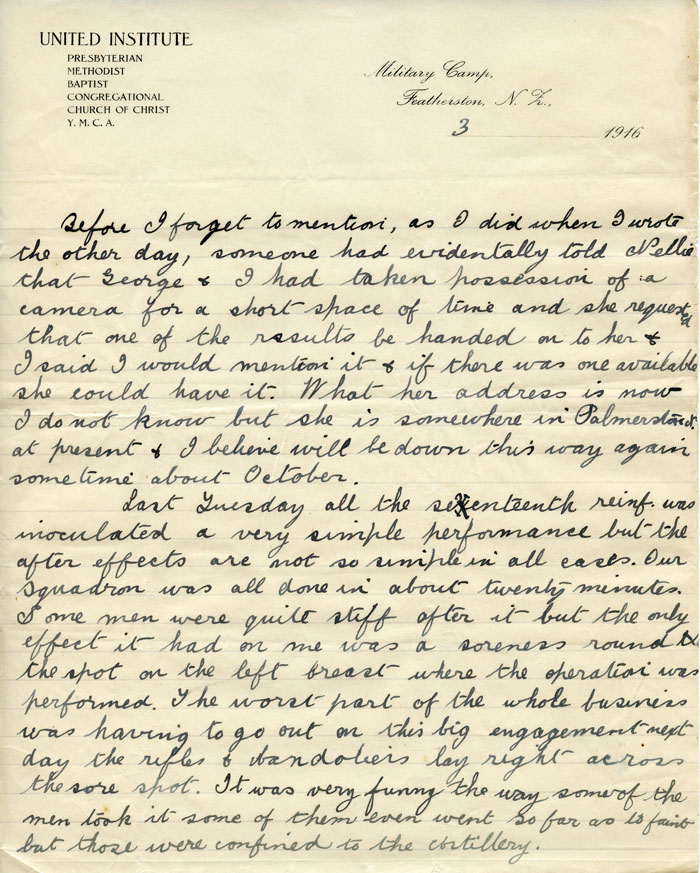 UNITED INSTITUTE
PRESBYTERIAN
METHODIST
BAPTIST
CONGREGATIONAL
CHURCH OF CHRIST
Y. M. C. A.
Military Camp,
Featherston, N. Z.,
3 1916
Before I forget to mention, as I did when I wrote
the other day, someone had evidentally told Nellie
that George & I had taken possession of a
camera for a short space of time and she requested
that one of the results be handed on to her &
I said I would mention it & if there was one available
she could have it. What her address is now
I do not know but she is somewhere in Palmerston
at present & I believe will be down this way again
sometime about October.
Last Tuesday all the seventeenth reinf. was
inoculated a very simple performance but the
after effects are not so simple in all cases. Our
squadron was all done in about twenty minutes.
Some men were quite stiff after it but the only
effect it had on me was a soreness round
the spot on the left breast where the operation was
performed. The worst part of the whole business
was having to go out on this big engagement next
day the rifles & bandoliers lay right across
the sore spot. It was very funny the way some of the
men took it some of them even went so far as to faint
but those were confined to the artillery.